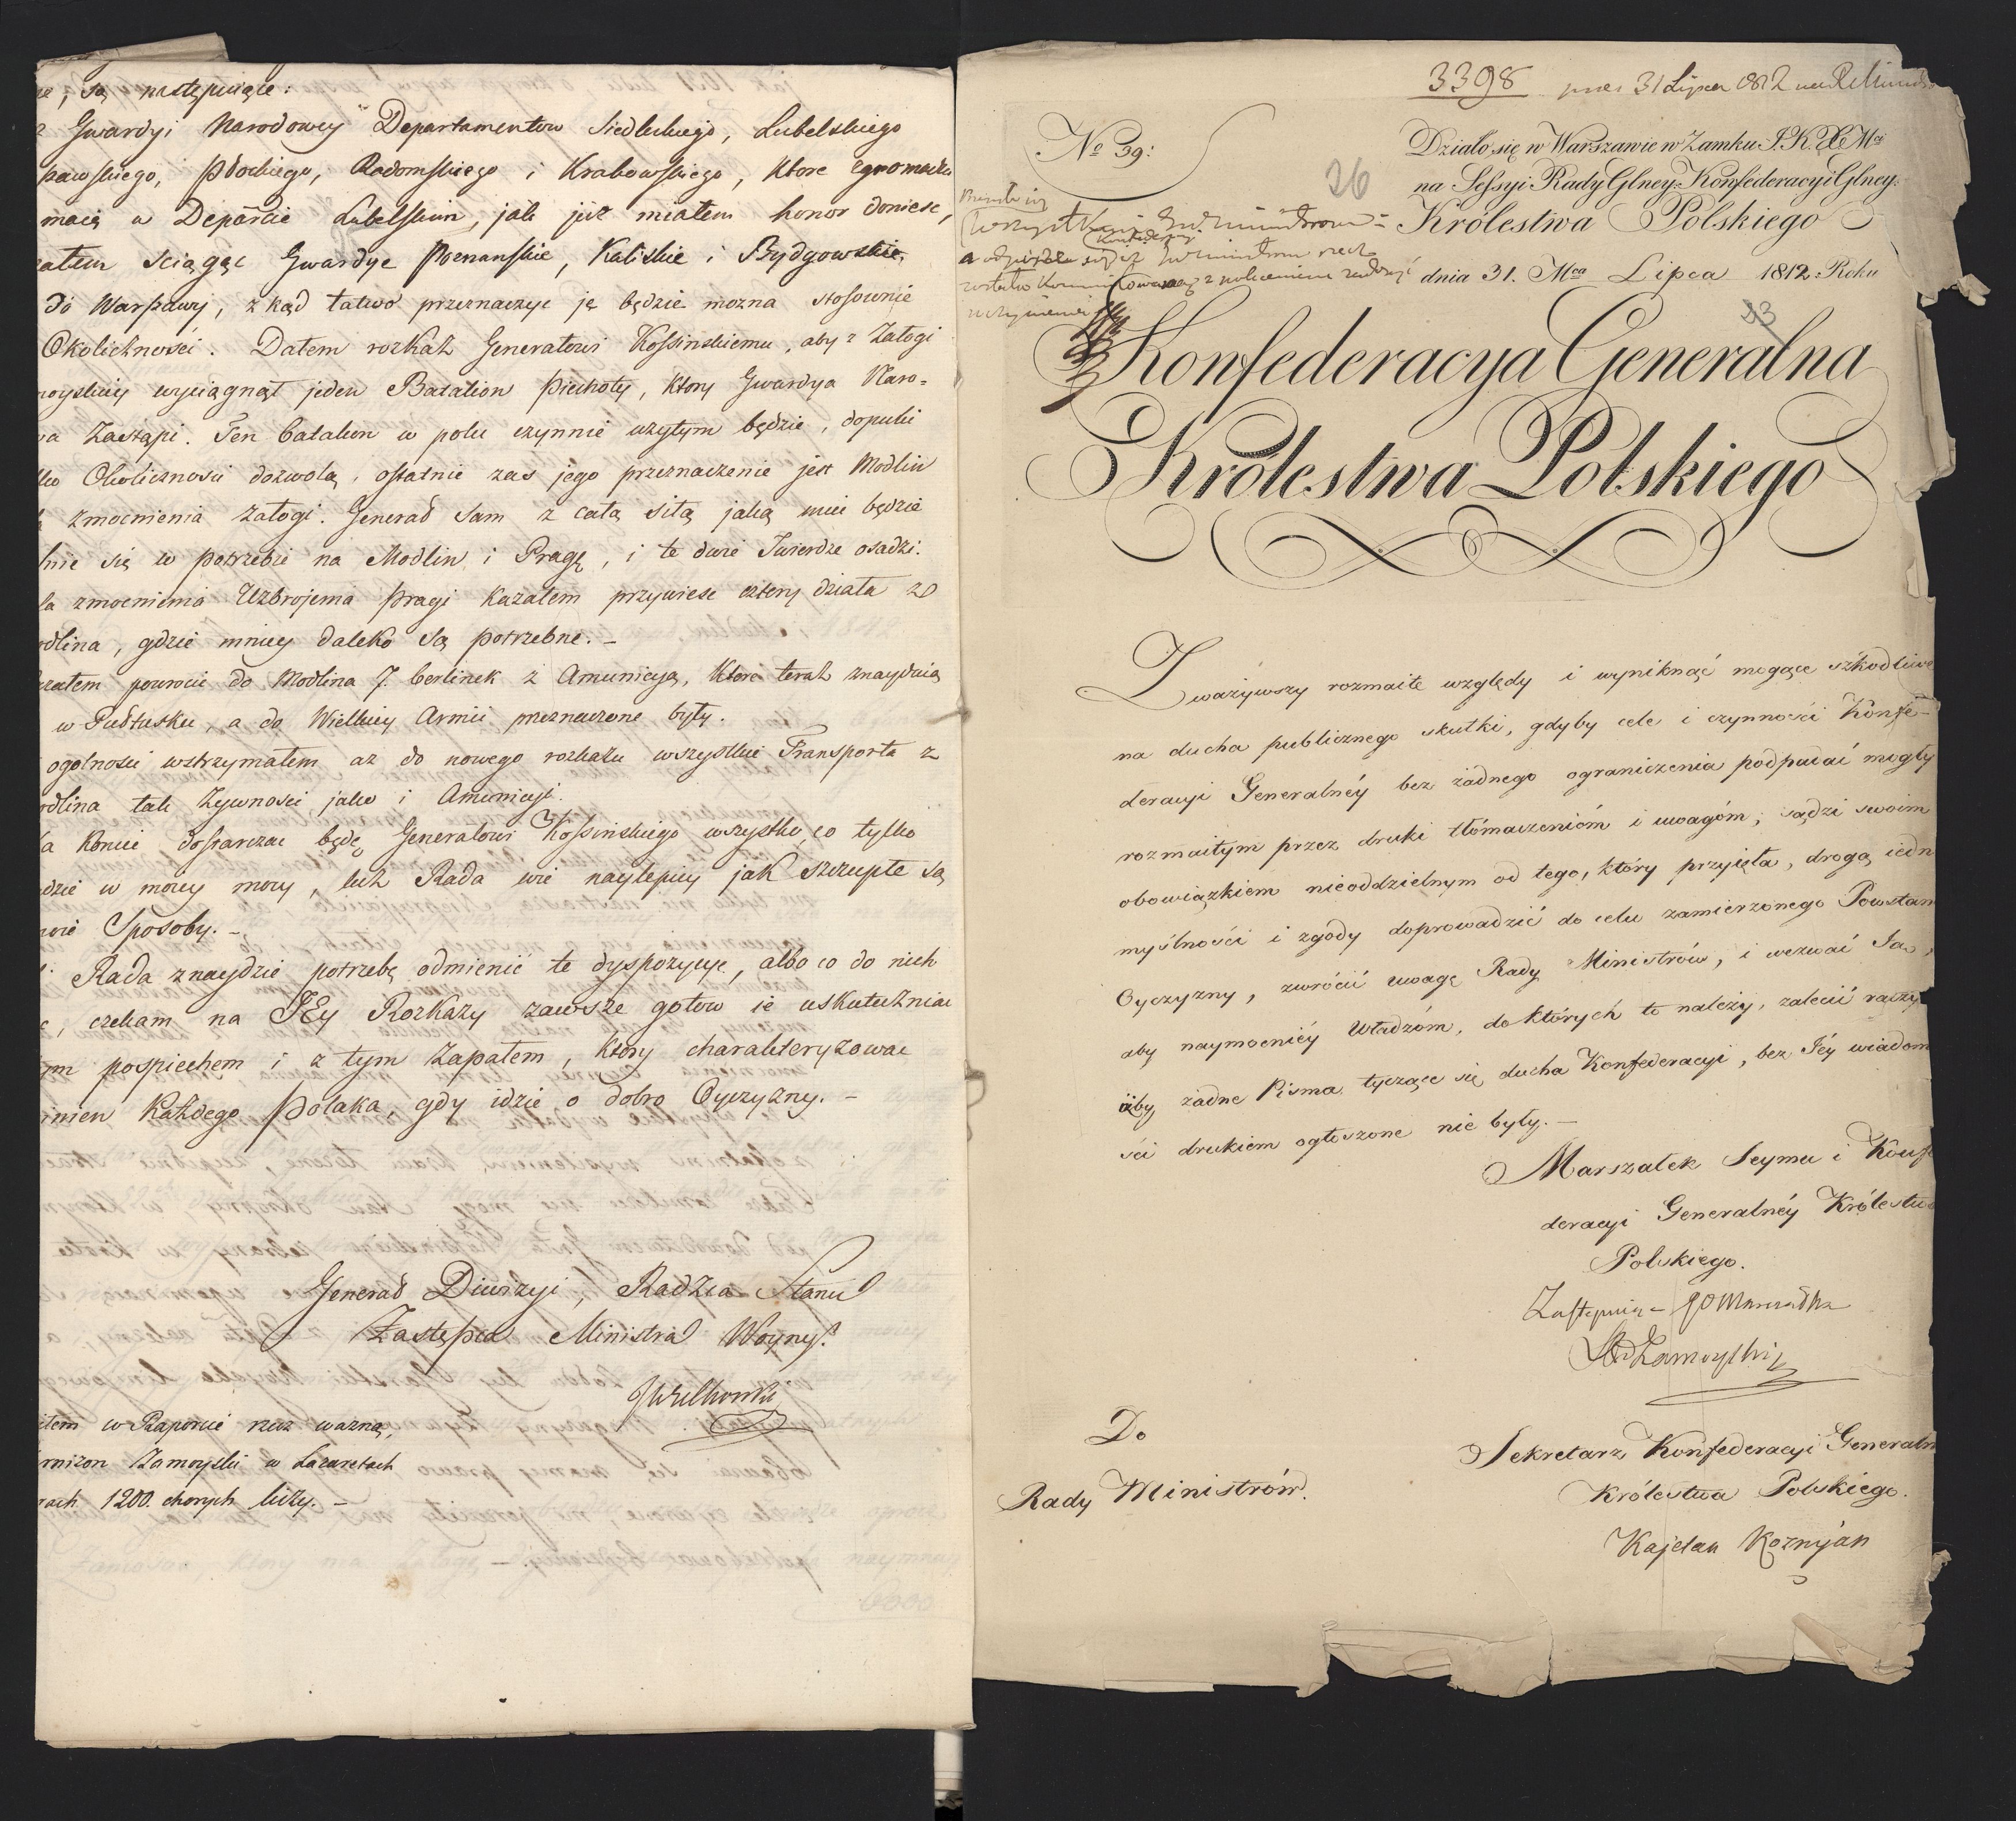 są następuiące:
Gwardyi Narodowey Departamentow Siedleckiego, Lubelskiego
Płockiego, Radomskiego i Krakowskiego, ktore
maią w Depart. Lubelskim, jak już miałem honor donieść,
ściągąć Gwardye Poznańskie, Kaliskie i Bydgowskie,
do Warszawy, z kąd łatwo przeznaczyć ję będzie mozna stosownie
Okoliczności. Dałem rozkaz Generałowi Kossinskiemu, aby z Załogi
wyciągnął jeden Batalion piechoty, ktory Gwardya Naro=
Zastąpi. Ten batalion w polu czynnie użytym będzie, dopuki
Okoliczności dozwolą, ostatnie zaś jego przeznaczenie jest Modlin
zmocnienia załogi. Generał sam z całą siłą jaką mieć będzie
się w potrzebie na Modlin i Pragę, i te dwie Twierdze osadzi.
zmocnienia Uzbrojenia pragi kazałem przywiesć cztery działa z
gdzie mniey daleko są potrzebne. —
powrócić do Modlina 7. berlinek z Amunicyą, które teraz znayduią
w Pułtusku, a do Wielkiey Armii przeznaczone były.
ogólnosci wstrzymałem aż do nowego rozkazu wszystkie Transporta z
tak Zywności jako i Amunicyi.
koncu dostarczać będę Generałowi Kossinskiego wszystko, co tylko
w moiey mocy, lecz Rada wie naylepiey jak szczupłe są
Sposoby. —
Rada znaydzie potrzebę odmienić te dyspozycye, albo co do nich
czekam na JEy Rozkazy zawsze gotow ie uskuteczniać
pospiechem i z tym Zapałem, ktory charakteryzować
Każdego Polaka, gdy idzie o dobro Oyczyzny. —
Generał Diwizyi, Radzca Stanu
Zastępca Ministra Woyny.
Wielhorski
w Raporcie rzecz ważną,
Zamoyski w Lazaretach
1200. chorych liczy. —
3398 31 Lipca 1812
No 39:
26
Działo się w Warszawie w Zamku J. K. X. Mci
na Sessyi Rady Glney Konfederacyi Glney.
Królestwa Polskiego
dnia 31. Mca Lipca 1812. Roku
Konfederacya Generalna
Królestwa Polskiego
Zważywszy rozmaite względy i wyniknąć mogące szkodliwe
na ducha publicznego skutki, gdyby cele i czynności Konfe-
deracyi Generalnéy bez żadnego ograniczenia podpadać mogły
rozmaitym przez druki tłómaczeniom i uwagóm, sądzi swoim
obowiązkiem nieoddzielnym od tego, który przyięła, drogą iedno
myślności i zgody doprowadzić do celu zamierzonego Powstan
Oyczyzny, zwrócić uwagę Rady Ministrów, i wezwać Ją,
aby naymocniéy Władzóm, do których to należy, zalecić raczy
ażby żadne Pisma tyczące się ducha Konfederacyi, bez Iéy wiadom
ści drukiem ogłoszone nie były. —
Marszałek Seymu i Konfe
deracyi Generalnéy Królestwa
Polskiego.
Zastępuiąc JO Marszałka
Zamoyski
Do
Rady Ministrów.
Sekretarz Konfederacyi Generaln
Królestwa Polskiego.
Kajetan Kozmyan